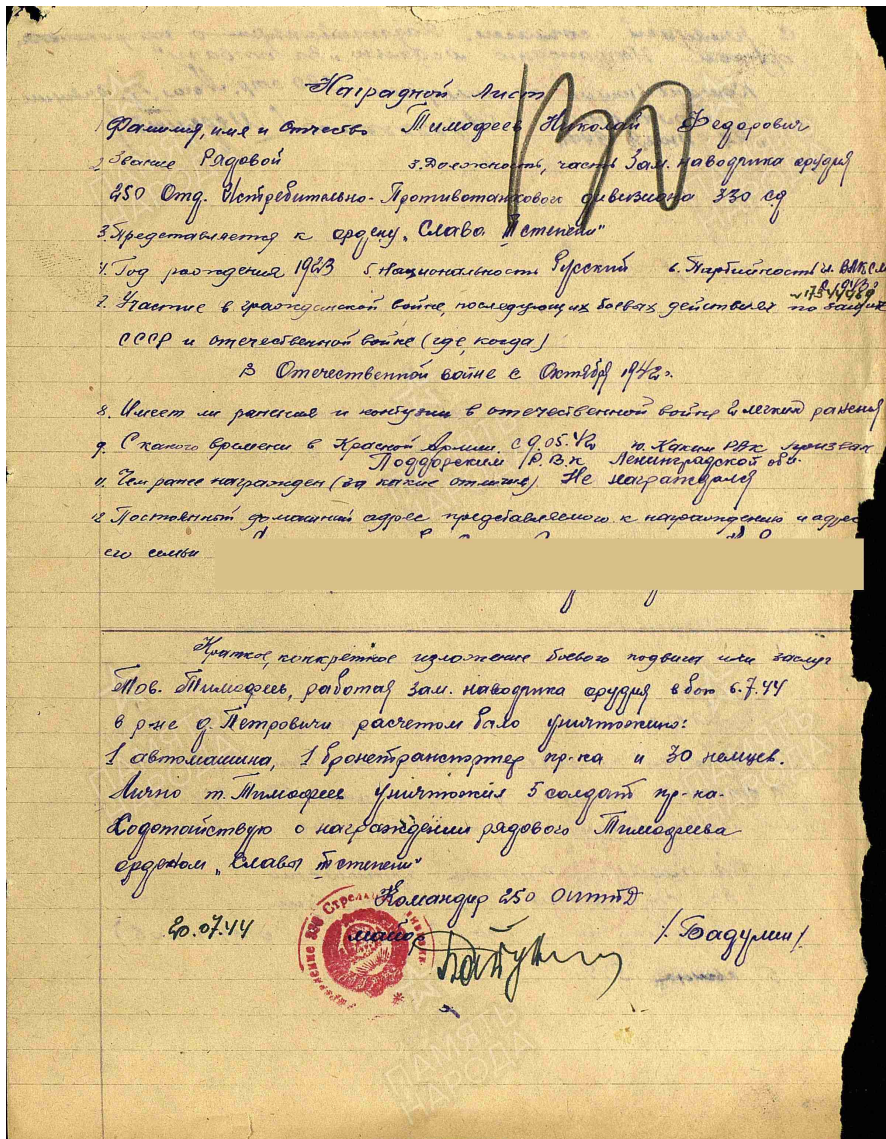 Наградной Лист
1. Фамилия, имя и Отчество Тимофеев Николай Федорович
2. Звание Рядовой 3. Должность, часть Зам. наводчика орудия
250 Отд. Истребительно-Противотанкового дивизиона 330 сд
3. Представляется к ордену „Слава III степени"
4. Год рождения 1923 5. Национальность Русский 6. Партийность чл. ВЛКСМ
с 1943 г
7. Участие в гражданской войне, последующих боевых действиях по защите
СССР и отечественной войне (где, когда)
В Отечественной войне с Октября 1942 г.
8. Имеет ли ранения и контузии в отечественной войне 2 легких ранения
9. С какого времени в Красной Армии с 9.05.42 10. Каким РВК призван
Поддорским Р.В.К Ленинградской обл.
11. Чем ранее награжден (за какие отличия) Не награждался
12. Постоянный домашний адрес представляемого к награждению и адрес
его семьи
Краткое, конкретное изложение боевого подвига или заслуг
Тов. Тимофеев, работая зам. наводчика орудия в бою 6.7.44
в р-не д. Петровичи расчетом было уничтожено:
1 автомашина, 1 бронетранспортер пр-ка и 30 немцев.
Лично т. Тимофеев уничтожил 5 солдат пр-ка.
Ходотайствую о награждении рядового Тимофеева
орденом „Славы III степени"
Командир 250 ОИПТД
20.07.44 майор /. Бадулин /.
Управление 330 Стрелк
ПАМЯТЬ
НАРОДА